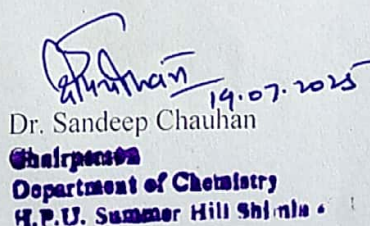 19.07.2025
Dr. Sandeep Chauhan
Chairperson
Department of Chemistry
H.P.U. Summer Hill Shimla